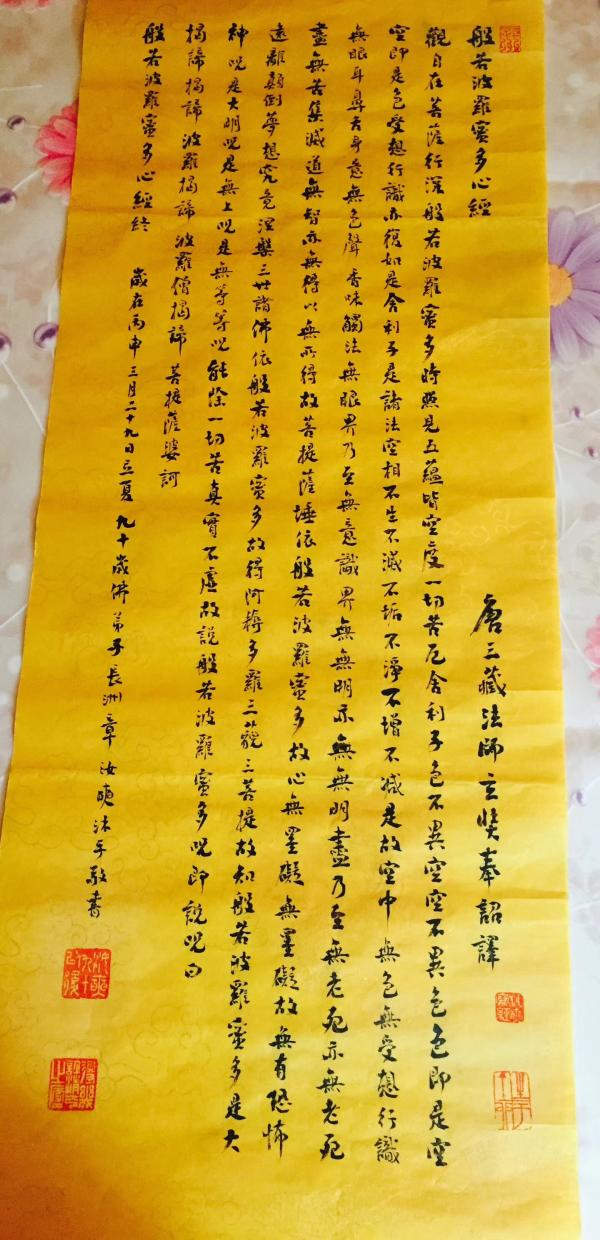 般若波羅蜜多心經
唐三藏法師玄奘奉詔譯
觀自在菩薩行深般若波羅蜜多時照見五蘊皆空度一切苦厄舍利子色不異空空不異色色即是空
空即是色受想行識亦復如是舍利子是諸法空相不生不滅不垢不淨不增不減是故空中無色無受想行識
無眼耳鼻舌身意無色聲香味觸法無眼界乃至無意識界無無明亦無無明盡乃至無老死亦無老死
盡無苦集滅道無智亦無得以無所得故菩提薩埵依般若波羅蜜多故心無罣礙無罣礙故無有恐怖
遠離顛倒夢想究竟涅槃三世諸佛依般若波羅蜜多故得阿耨多羅三藐三菩提故知般若波羅蜜多是大
神呪是大明呪是無上呪是無等等呪能除一切苦真實不虛故說般若波羅蜜多呪即說呪曰
揭諦揭諦 波羅揭諦 波羅僧揭諦 菩提薩婆訶
般若波羅蜜多心經終 歲在丙申三月二十九日立夏 九十歲佛弟子長洲章汝奭沐手敬書